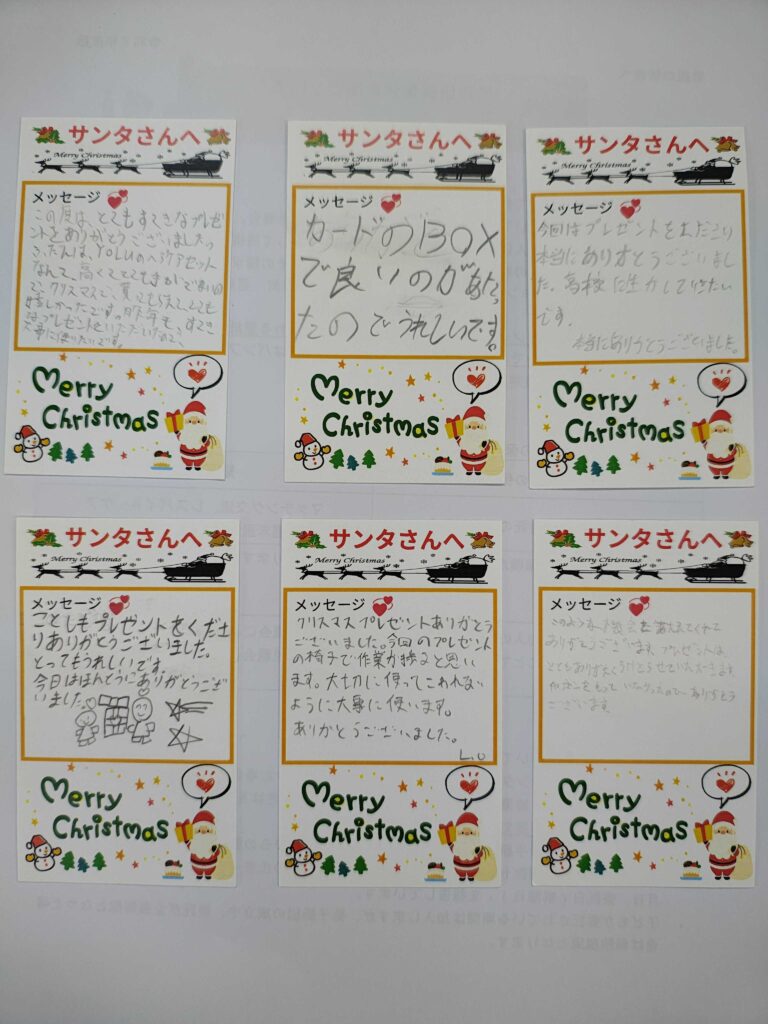 サンタさんへ
Merry Christmas
メッセージ
この度は、とてもすてきなプレゼ
ントをありがとうございましたっ
なんて、高くてとても
で、クリスマスに、貰えるなんてとても
嬉しかったです。昨年も、すてき
なプレゼントをいただいたので、
大事に使いたいです。
Merry
Christmas
サンタさんへ
Merry Christmas
メッセージ
カードのBOX
で良いのがあた
たのでうれしいです。
Merry
Christmas
サンタさんへ
Merry Christmas
メッセージ
今回はプレゼントをいただき
本当にありがとうございまし
た。高校に生かしていきたい
です。
本当にありがとうございました。
Merry
Christmas
サンタさんへ
Merry Christmas
メッセージ
ことしもプレゼントをくださ
りありがとうございました。
とってもうれしいです。
今日はほんとうにありがとうござ
いました。
Merry
Christmas
サンタさんへ
Merry Christmas
メッセージ
クリスマスプレゼントありがとう
ございました。今回のプレゼント
の椅子で作業が捗ると思い
ます。大切に使ってこわれない
ように大事に使います。
ありがとうございました。
L.O
Merry
Christmas
サンタさんへ
Merry Christmas
メッセージ
このような機会を与えてくれて
ありがとうございます。プレゼントは
とてもありがたくうけとらせていただきます。
ありがとう
ございます。
Merry
Christmas